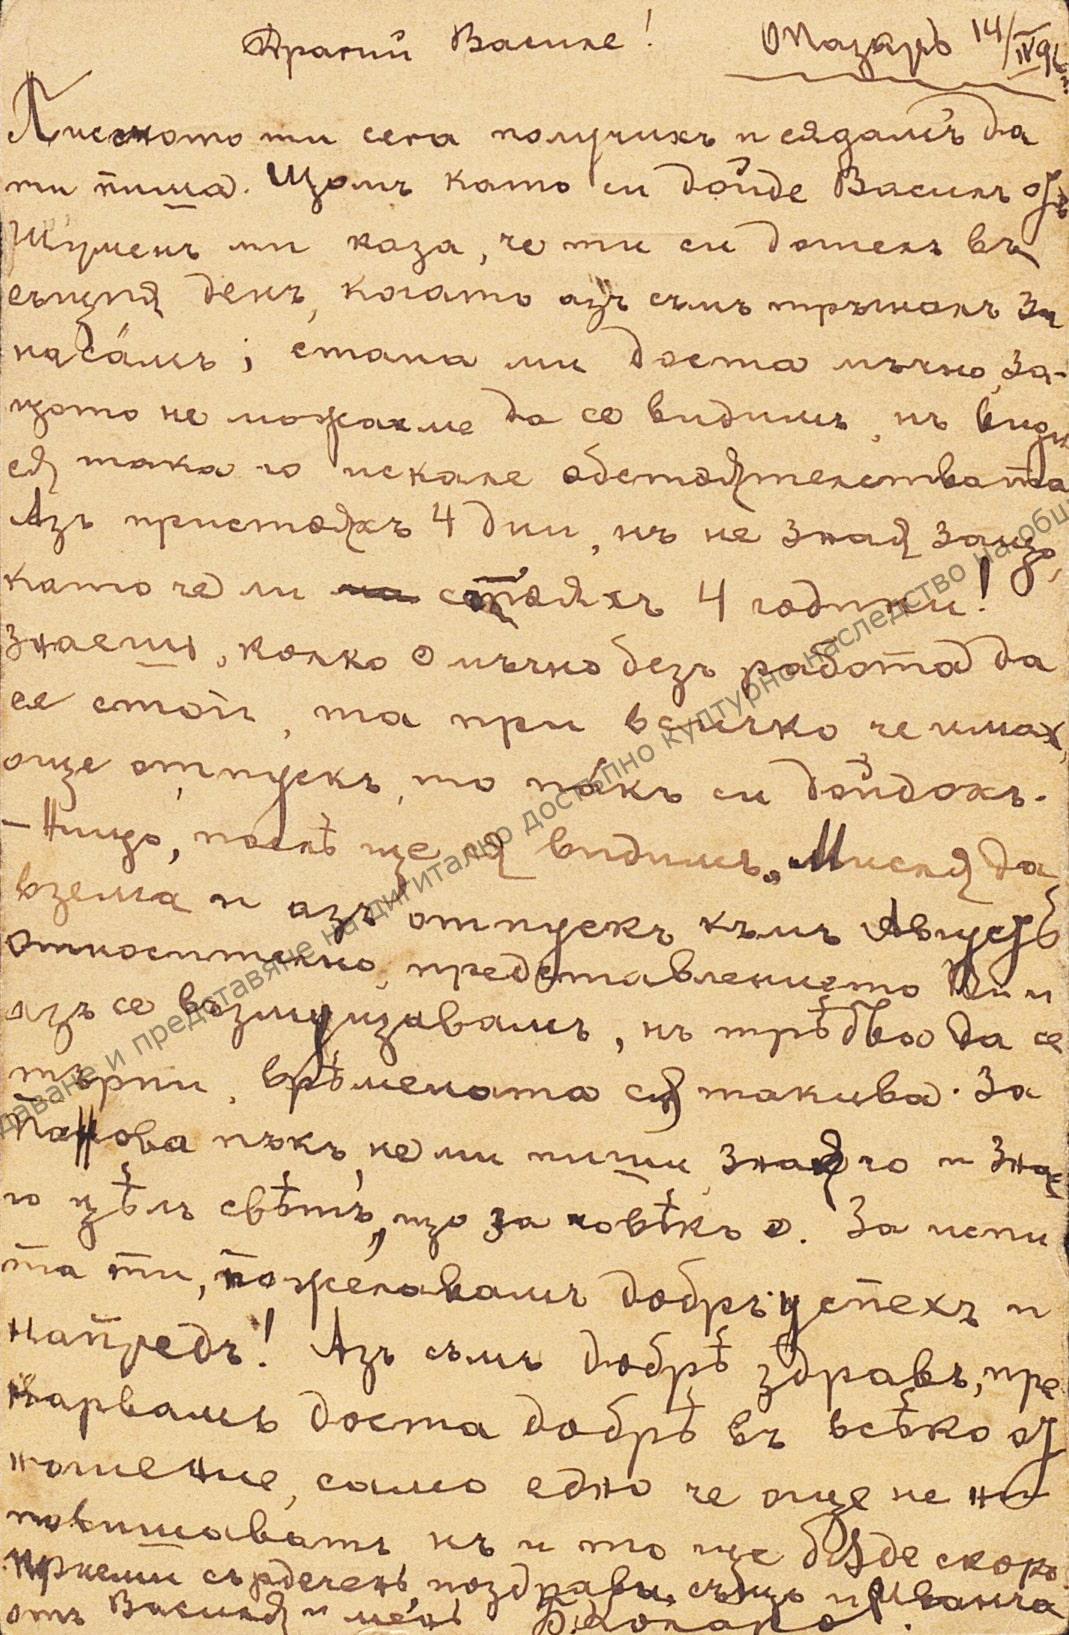 Драгий Василе! ОПазаръ 14/IV 96
Писмото ти сега получихъ и сядамъ да
ти пиша. Щомъ като си дойде Василъ отъ
Шуменъ ми каза, че ти си дошелъ въ
същия день, когато азъ съмъ тръгналъ за
насамъ; стана ми доста мъчно, за-
щото не можахме да се видимъ, нъ види
ся така го искале обстоятелствата
Азъ пристояхъ 4 дни, нъ не зная защо,
като че ли стояхъ 4 години!
Знаешъ, колко е мъчно безъ работа да
се стои, та при всичко че имахъ
още отпускъ, то пакъ си дойдохъ.
– Нищо, послѣ ще ся видимъ. Мисля да
взема и азъ отпускъ къмъ Августъ
Относително представлението Ви и
азъ се възмущавамъ, нъ трѣбва да се
търпи, врѣмената сѫ такива. За
Панова пъкъ не ми пиши, зная го и знае
го цѣлъ свѣтъ, що за човѣкъ е. За испи
та ти, пожелавамъ добръ успехъ и
напредъ! Азъ съмъ добрѣ здравъ, пре
карвамъ доста добрѣ въ всѣко от
ношение, само едно че още не ни
повишаватъ нъ и то ще бѫде скоро.
Приеми сърдеченъ поздравъ, също и Иванча
отъ Василя и менъ